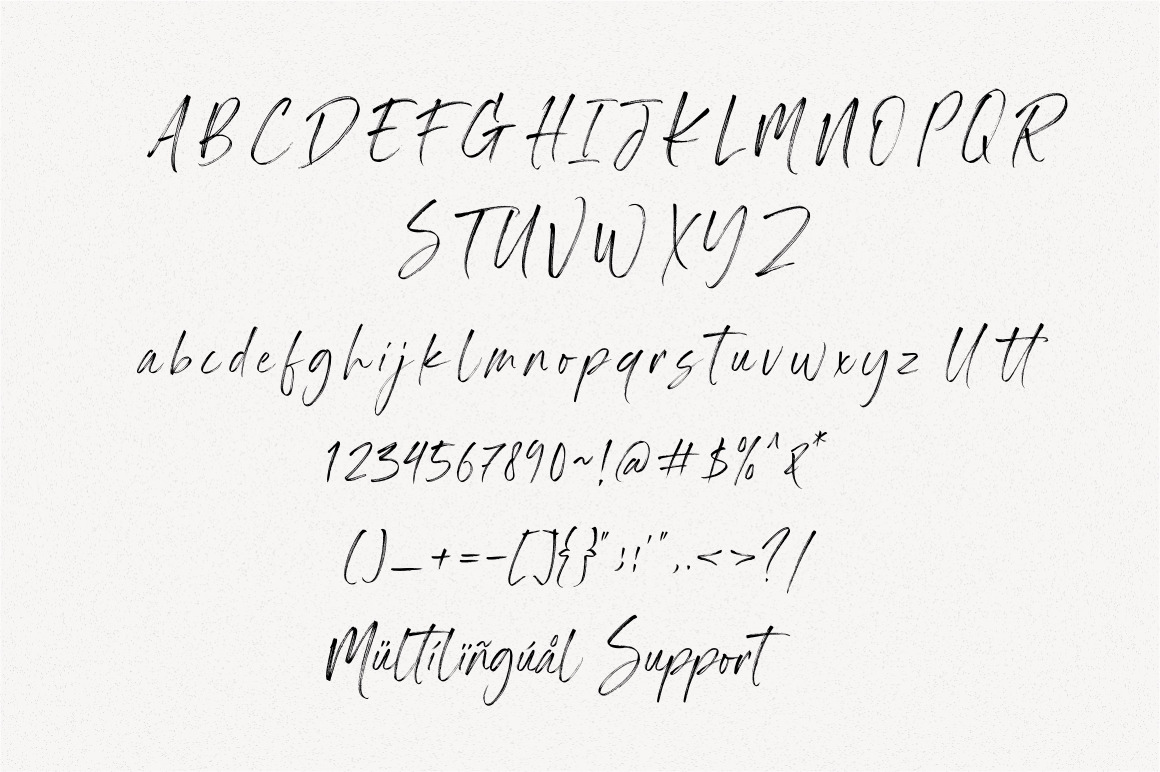 A B C D E F G H I J K L M N O P Q R
S T U V W X Y Z
a b c d e f g h i j k l m n o p q r s t u v w x y z ll tt
1234567890~!@#$%^&*
()_+=-[]{}";:'",.<>?/
Mültílïñgúål Support